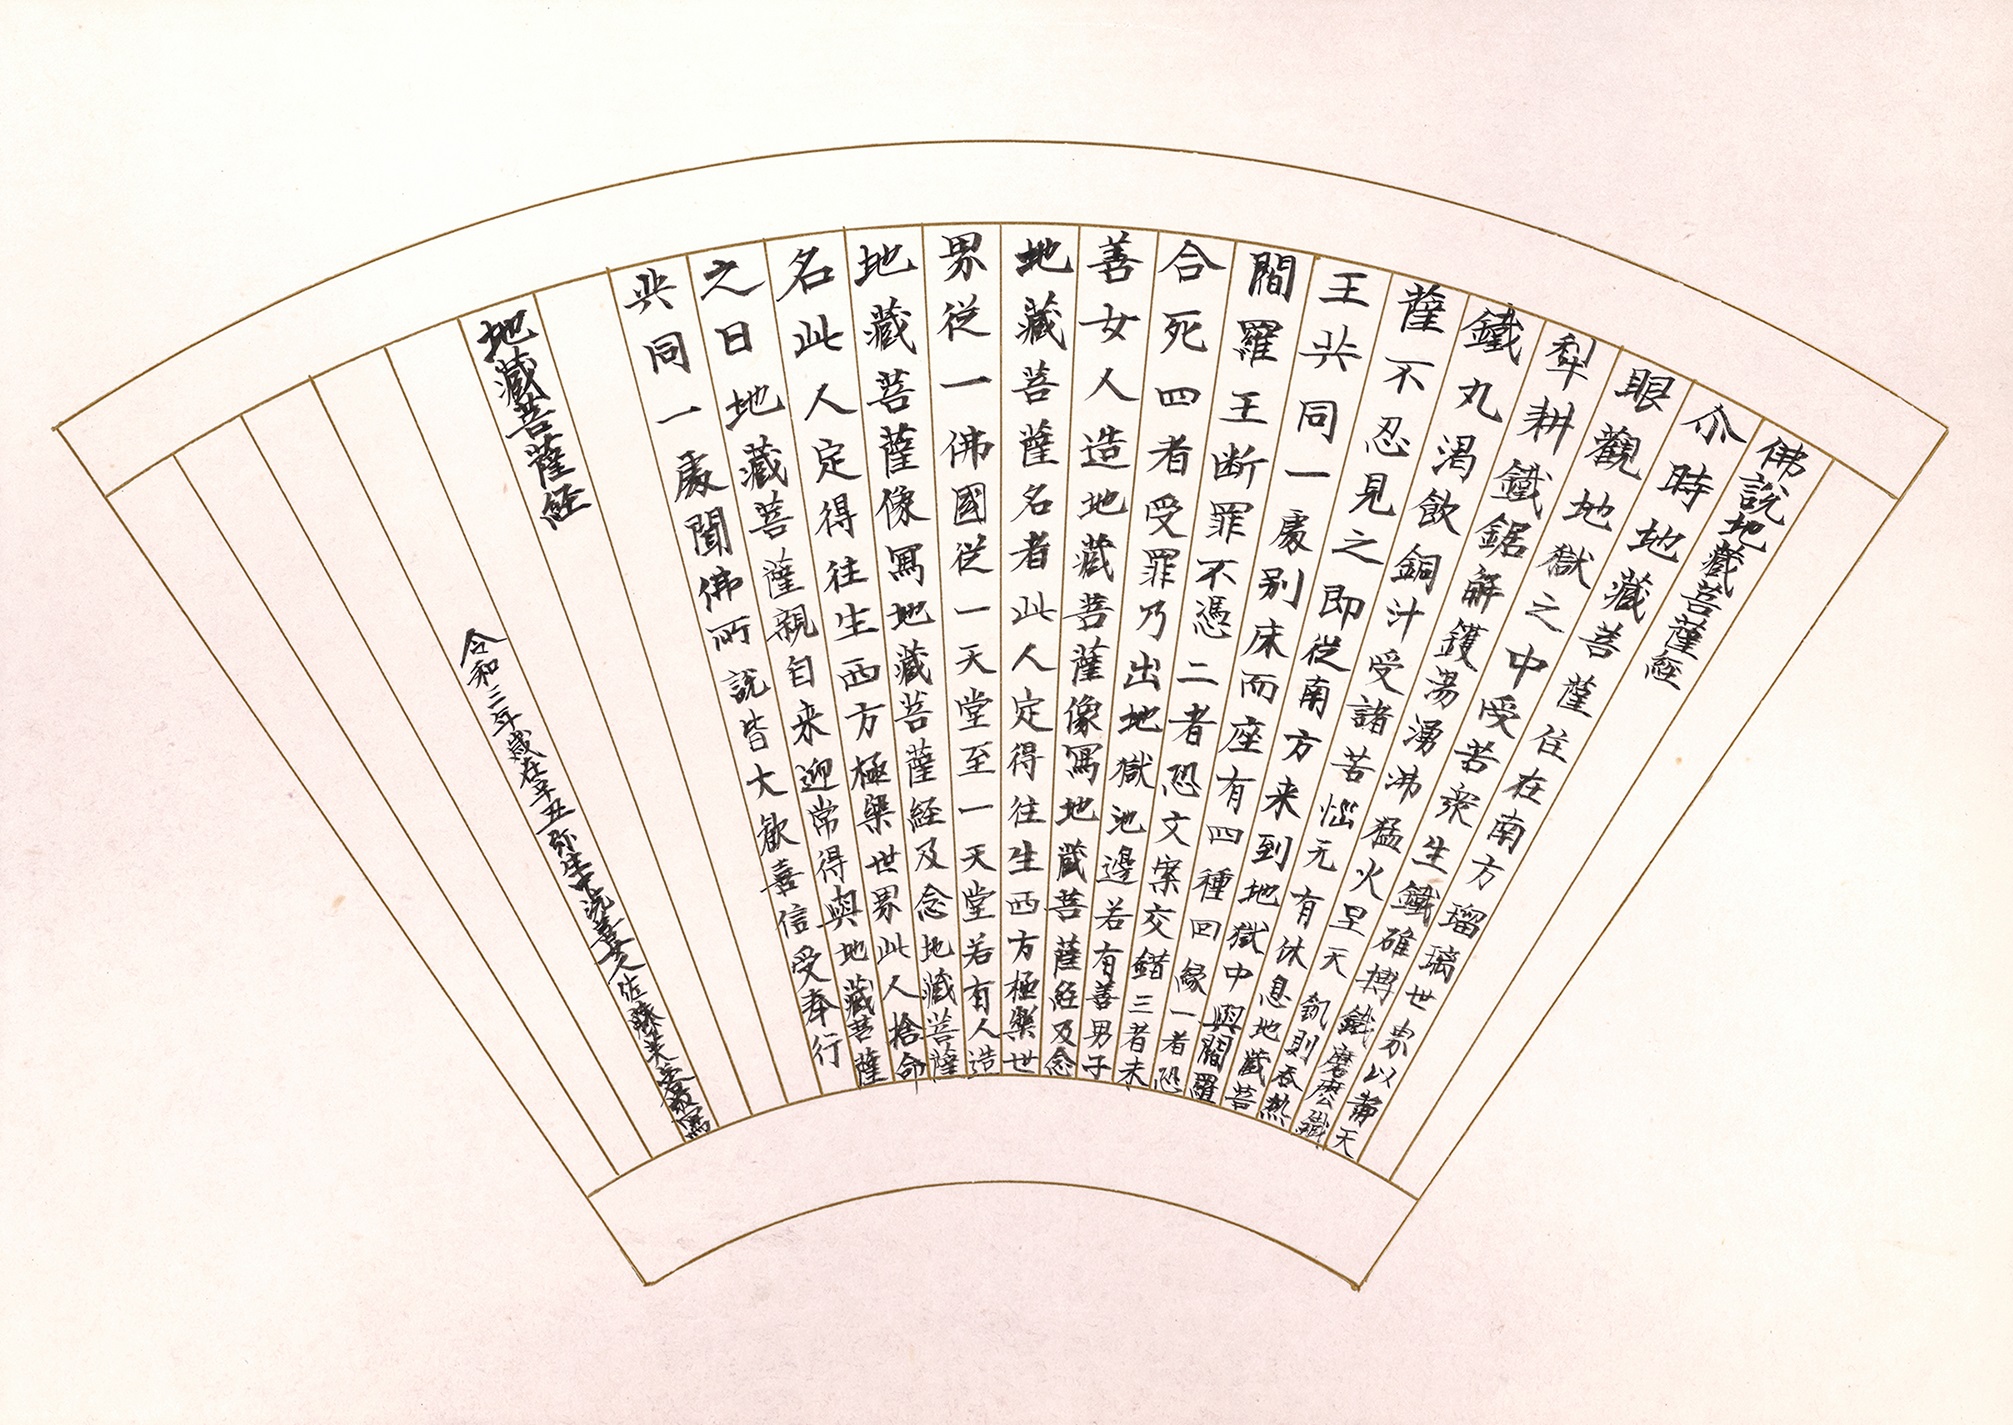 佛説地藏菩薩経
尒時地藏菩薩住在南方瑠璃世界以静天
眼觀地獄之中受苦衆生鐵碓搏鐵磨麽鐵
犁耕鐵鋸解鑊湯湧沸猛火旦天飢則吞熱
鐵丸渇飲銅汁受諸苦惱无有休息地藏菩
薩不忍見之即従南方来到地獄中與閻羅
王共同一處别床而座有四種回縁一者恐
閻羅王断罪不憑二者恐文案交錯三者未
合死四者受罪乃出地獄池邊若有善男子
善女人造地藏菩薩像寫地藏菩薩経及念
地藏菩薩名者此人定得往生西方極樂世
界従一佛國従一天堂至一天堂若有人造
地藏菩薩像寫地藏菩薩経及念地藏菩薩
名此人定得往生西方極樂世界此人捨命
之日地藏菩薩親自来迎常得與地藏菩薩
共同一處聞佛所説皆大歓喜信受奉行
地藏菩薩経
令和三年歳在辛丑弥生 佐藤 敬寫